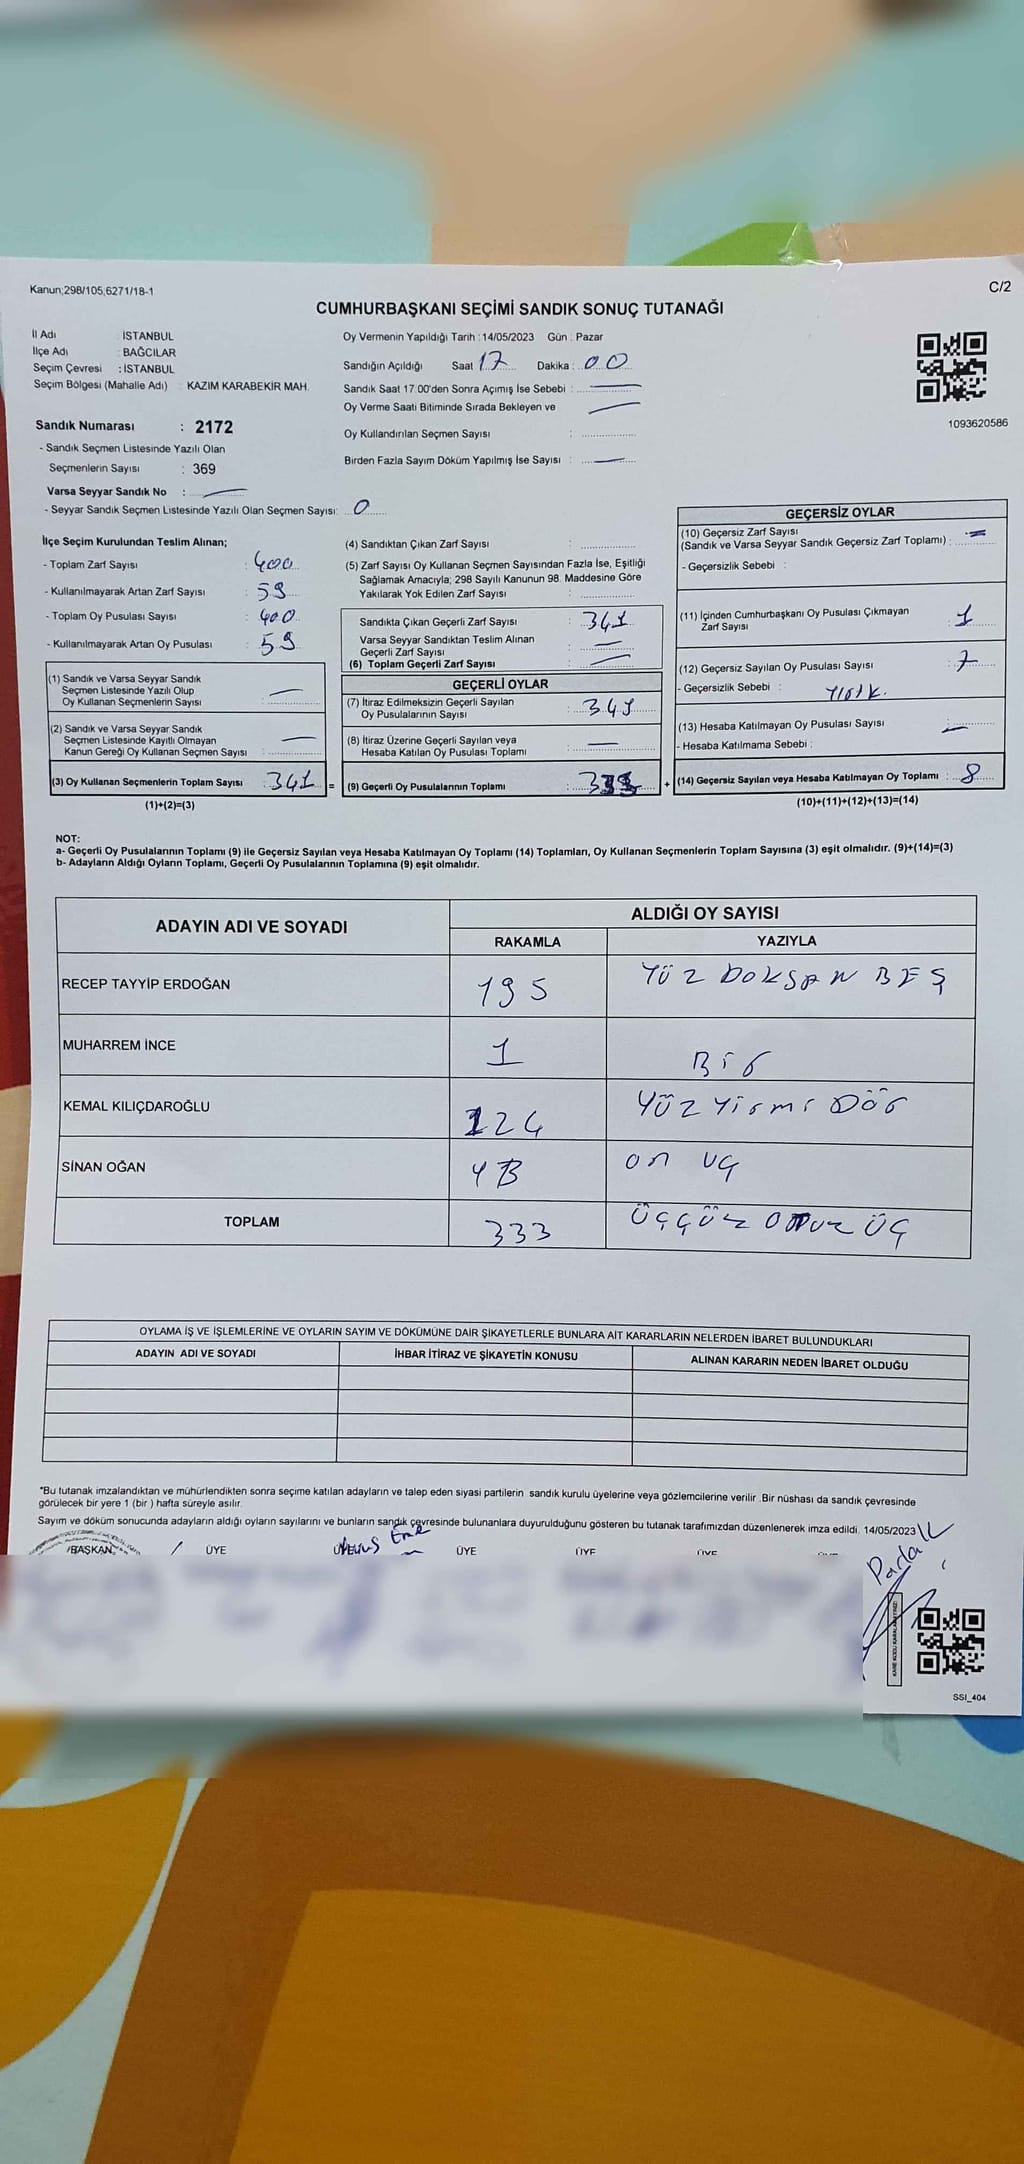 Kanun;298/105,6271/18-1
C/2
CUMHURBAŞKANI SEÇİMİ SANDIK SONUÇ TUTANAĞI
İl Adı : İSTANBUL
İlçe Adı : BAĞCILAR
Seçim Çevresi : İSTANBUL
Seçim Bölgesi (Mahalle Adı) : KAZIM KARABEKİR MAH.
Sandık Numarası : 2172
- Sandık Seçmen Listesinde Yazılı Olan
Seçmenlerin Sayısı : 369
Varsa Seyyar Sandık No :
- Seyyar Sandık Seçmen Listesinde Yazılı Olan Seçmen Sayısı: 0
Oy Vermenin Yapıldığı Tarih : 14/05/2023 Gün : Pazar
Sandığın Açıldığı Saat 17 Dakika : 00
Sandık Saat 17:00'den Sonra Açımış İse Sebebi :
Oy Verme Saati Bitiminde Sırada Bekleyen ve
Oy Kullandırılan Seçmen Sayısı :
Birden Fazla Sayım Döküm Yapılmış İse Sayısı :
1093620586
İlçe Seçim Kurulundan Teslim Alınan;
- Toplam Zarf Sayısı : 400
- Kullanılmayarak Artan Zarf Sayısı : 59
- Toplam Oy Pusulası Sayısı : 400
- Kullanılmayarak Artan Oy Pusulası : 59
(1) Sandık ve Varsa Seyyar Sandık
Seçmen Listesinde Yazılı Olup
Oy Kullanan Seçmenlerin Sayısı :
(2) Sandık ve Varsa Seyyar Sandık
Seçmen Listesinde Kayıtlı Olmayan
Kanun Gereği Oy Kullanan Seçmen Sayısı :
(3) Oy Kullanan Seçmenlerin Toplam Sayısı : 341 =
(1)+(2)=(3)
(4) Sandıktan Çıkan Zarf Sayısı :
(5) Zarf Sayısı Oy Kullanan Seçmen Sayısından Fazla İse, Eşitliği
Sağlamak Amacıyla; 298 Sayılı Kanunun 98. Maddesine Göre
Yakılarak Yok Edilen Zarf Sayısı :
Sandıkta Çıkan Geçerli Zarf Sayısı : 341
Varsa Seyyar Sandıktan Teslim Alınan
Geçerli Zarf Sayısı :
(6) Toplam Geçerli Zarf Sayısı :
GEÇERLİ OYLAR
(7) İtiraz Edilmeksizin Geçerli Sayılan
Oy Pusulalarının Sayısı : 341
(8) İtiraz Üzerine Geçerli Sayılan veya
Hesaba Katılan Oy Pusulası Toplamı :
(9) Geçerli Oy Pusulalarının Toplamı : +
GEÇERSİZ OYLAR
(10) Geçersiz Zarf Sayısı
(Sandık ve Varsa Seyyar Sandık Geçersiz Zarf Toplamı) :
- Geçersizlik Sebebi :
(11) İçinden Cumhurbaşkanı Oy Pusulası Çıkmayan
Zarf Sayısı : 1
(12) Geçersiz Sayılan Oy Pusulası Sayısı : 7
- Geçersizlik Sebebi :
(13) Hesaba Katılmayan Oy Pusulası Sayısı :
- Hesaba Katılmama Sebebi :
(14) Geçersiz Sayılan veya Hesaba Katılmayan Oy Toplamı : 8
(10)+(11)+(12)+(13)=(14)
NOT:
a- Geçerli Oy Pusulalarının Toplamı (9) ile Geçersiz Sayılan veya Hesaba Katılmayan Oy Toplamı (14) Toplamları, Oy Kullanan Seçmenlerin Toplam Sayısına (3) eşit olmalıdır. (9)+(14)=(3)
b- Adayların Aldığı Oyların Toplamı, Geçerli Oy Pusulalarının Toplamına (9) eşit olmalıdır.
ADAYIN ADI VE SOYADI ALDIĞI OY SAYISI
RAKAMLA YAZIYLA
RECEP TAYYİP ERDOĞAN 195 YÜZ DOKSAN BEŞ
MUHARREM İNCE 1 Bir
KEMAL KILIÇDAROĞLU 124 YÜZ Yirmi DÖr
SİNAN OĞAN 13 on üç
TOPLAM 333 ÜÇÇÜZ OTUZ ÜÇ
OYLAMA İŞ VE İŞLEMLERİNE VE OYLARIN SAYIM VE DÖKÜMÜNE DAİR ŞİKAYETLERLE BUNLARA AİT KARARLARIN NELERDEN İBARET BULUNDUKLARI
ADAYIN ADI VE SOYADI İHBAR İTİRAZ VE ŞİKAYETİN KONUSU ALINAN KARARIN NEDEN İBARET OLDUĞU
*Bu tutanak imzalandıktan ve mühürlendikten sonra seçime katılan adayların ve talep eden siyasi partilerin sandık kurulu üyelerine veya gözlemcilerine verilir .Bir nüshası da sandık çevresinde
görülecek bir yere 1 (bir ) hafta süreyle asılır.
Sayım ve döküm sonucunda adayların aldığı oyların sayılarını ve bunların sandık çevresinde bulunanlara duyurulduğunu gösteren bu tutanak tarafımızdan düzenlenerek imza edildi. 14/05/2023
BAŞKAN ÜYE ÜYE ÜYE ÜYE
SSI_404